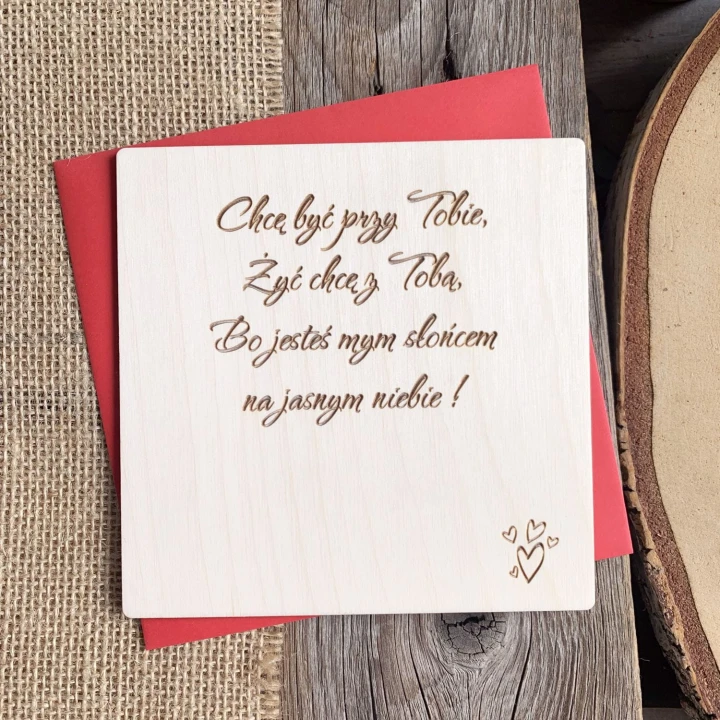 Chcę być przy Tobie,
Żyć chcę z Tobą,
Bo jesteś mym słońcem
na jasnym niebie !